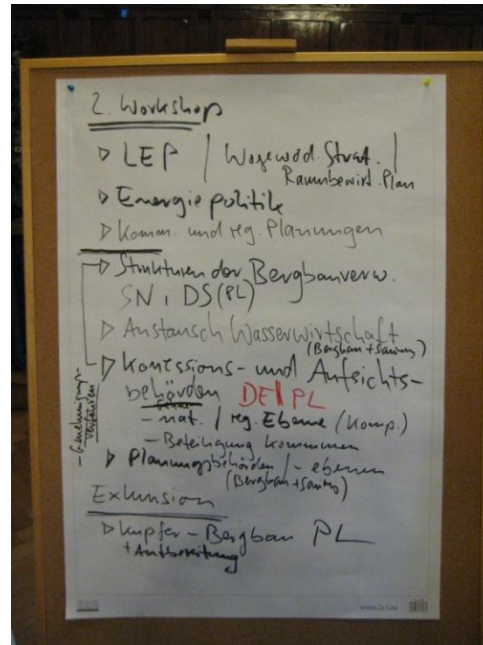 2. Workshop
▷ LEP / Wojewod. Strat. /
Raumbewirt. Plan
▷ Energiepolitik
▷ Komm. und reg. Planungen
▷ Strukturen der Bergbauverw.
SN, DS (PL)
▷ Austausch Wasserwirtschaft
(Bergbau + Sanierung)
▷ Konzessions- und Aufsichts-
behörden DE/PL
- nat. / reg. Ebene (Komp.)
- Beteiligung Kommunen
- Genehmigungs-
verfahren
▷ Planungsbehörden / - ebenen
(Bergbau + Sanierung)
Exkursion
▷ Kupfer - Bergbau PL
+ Aufbereitung